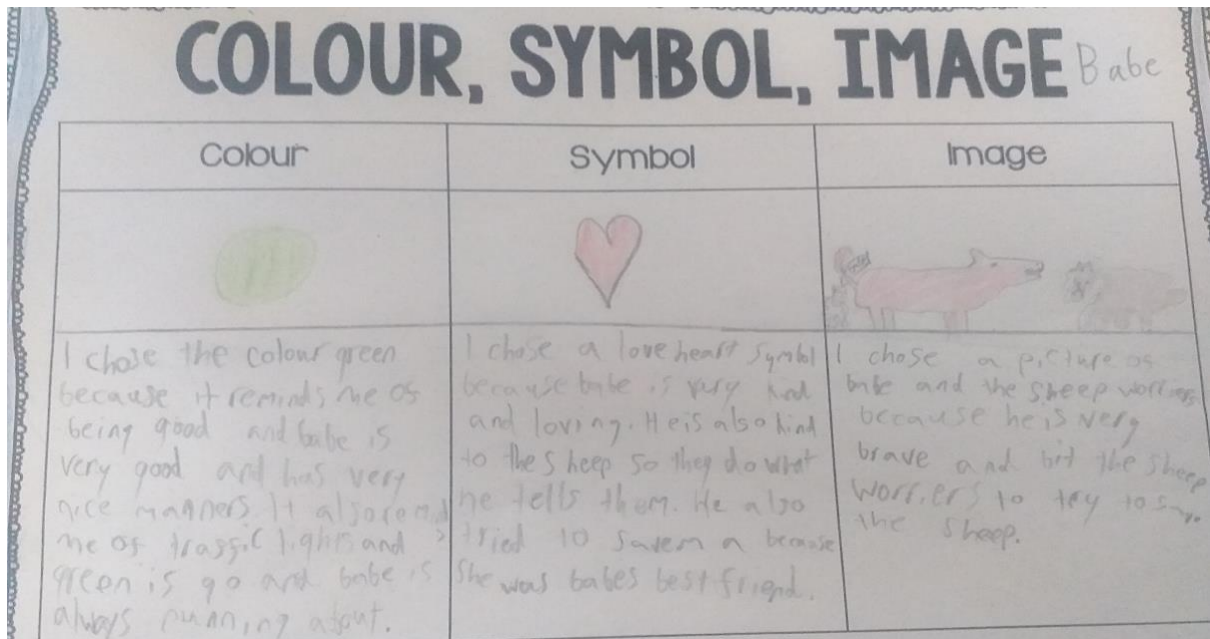 COLOUR, SYMBOL, IMAGE Babe
Colour
Symbol
Image
I chose the colour green
because it reminds me of
being good and babe is
very good and has very
nice manners. It also remind
me of traffic lights and s
green is go and babe is
always running about.
I chose a love heart symbol
because babe is very kind
and loving. He is also kind
to the sheep so they do what
he tells them. He also
tried to save ma because
she was babes best friend.
I chose a picture of
babe and the sheep worriers
because he is very
brave and bit the sheep
worriers to try to save
the sheep.